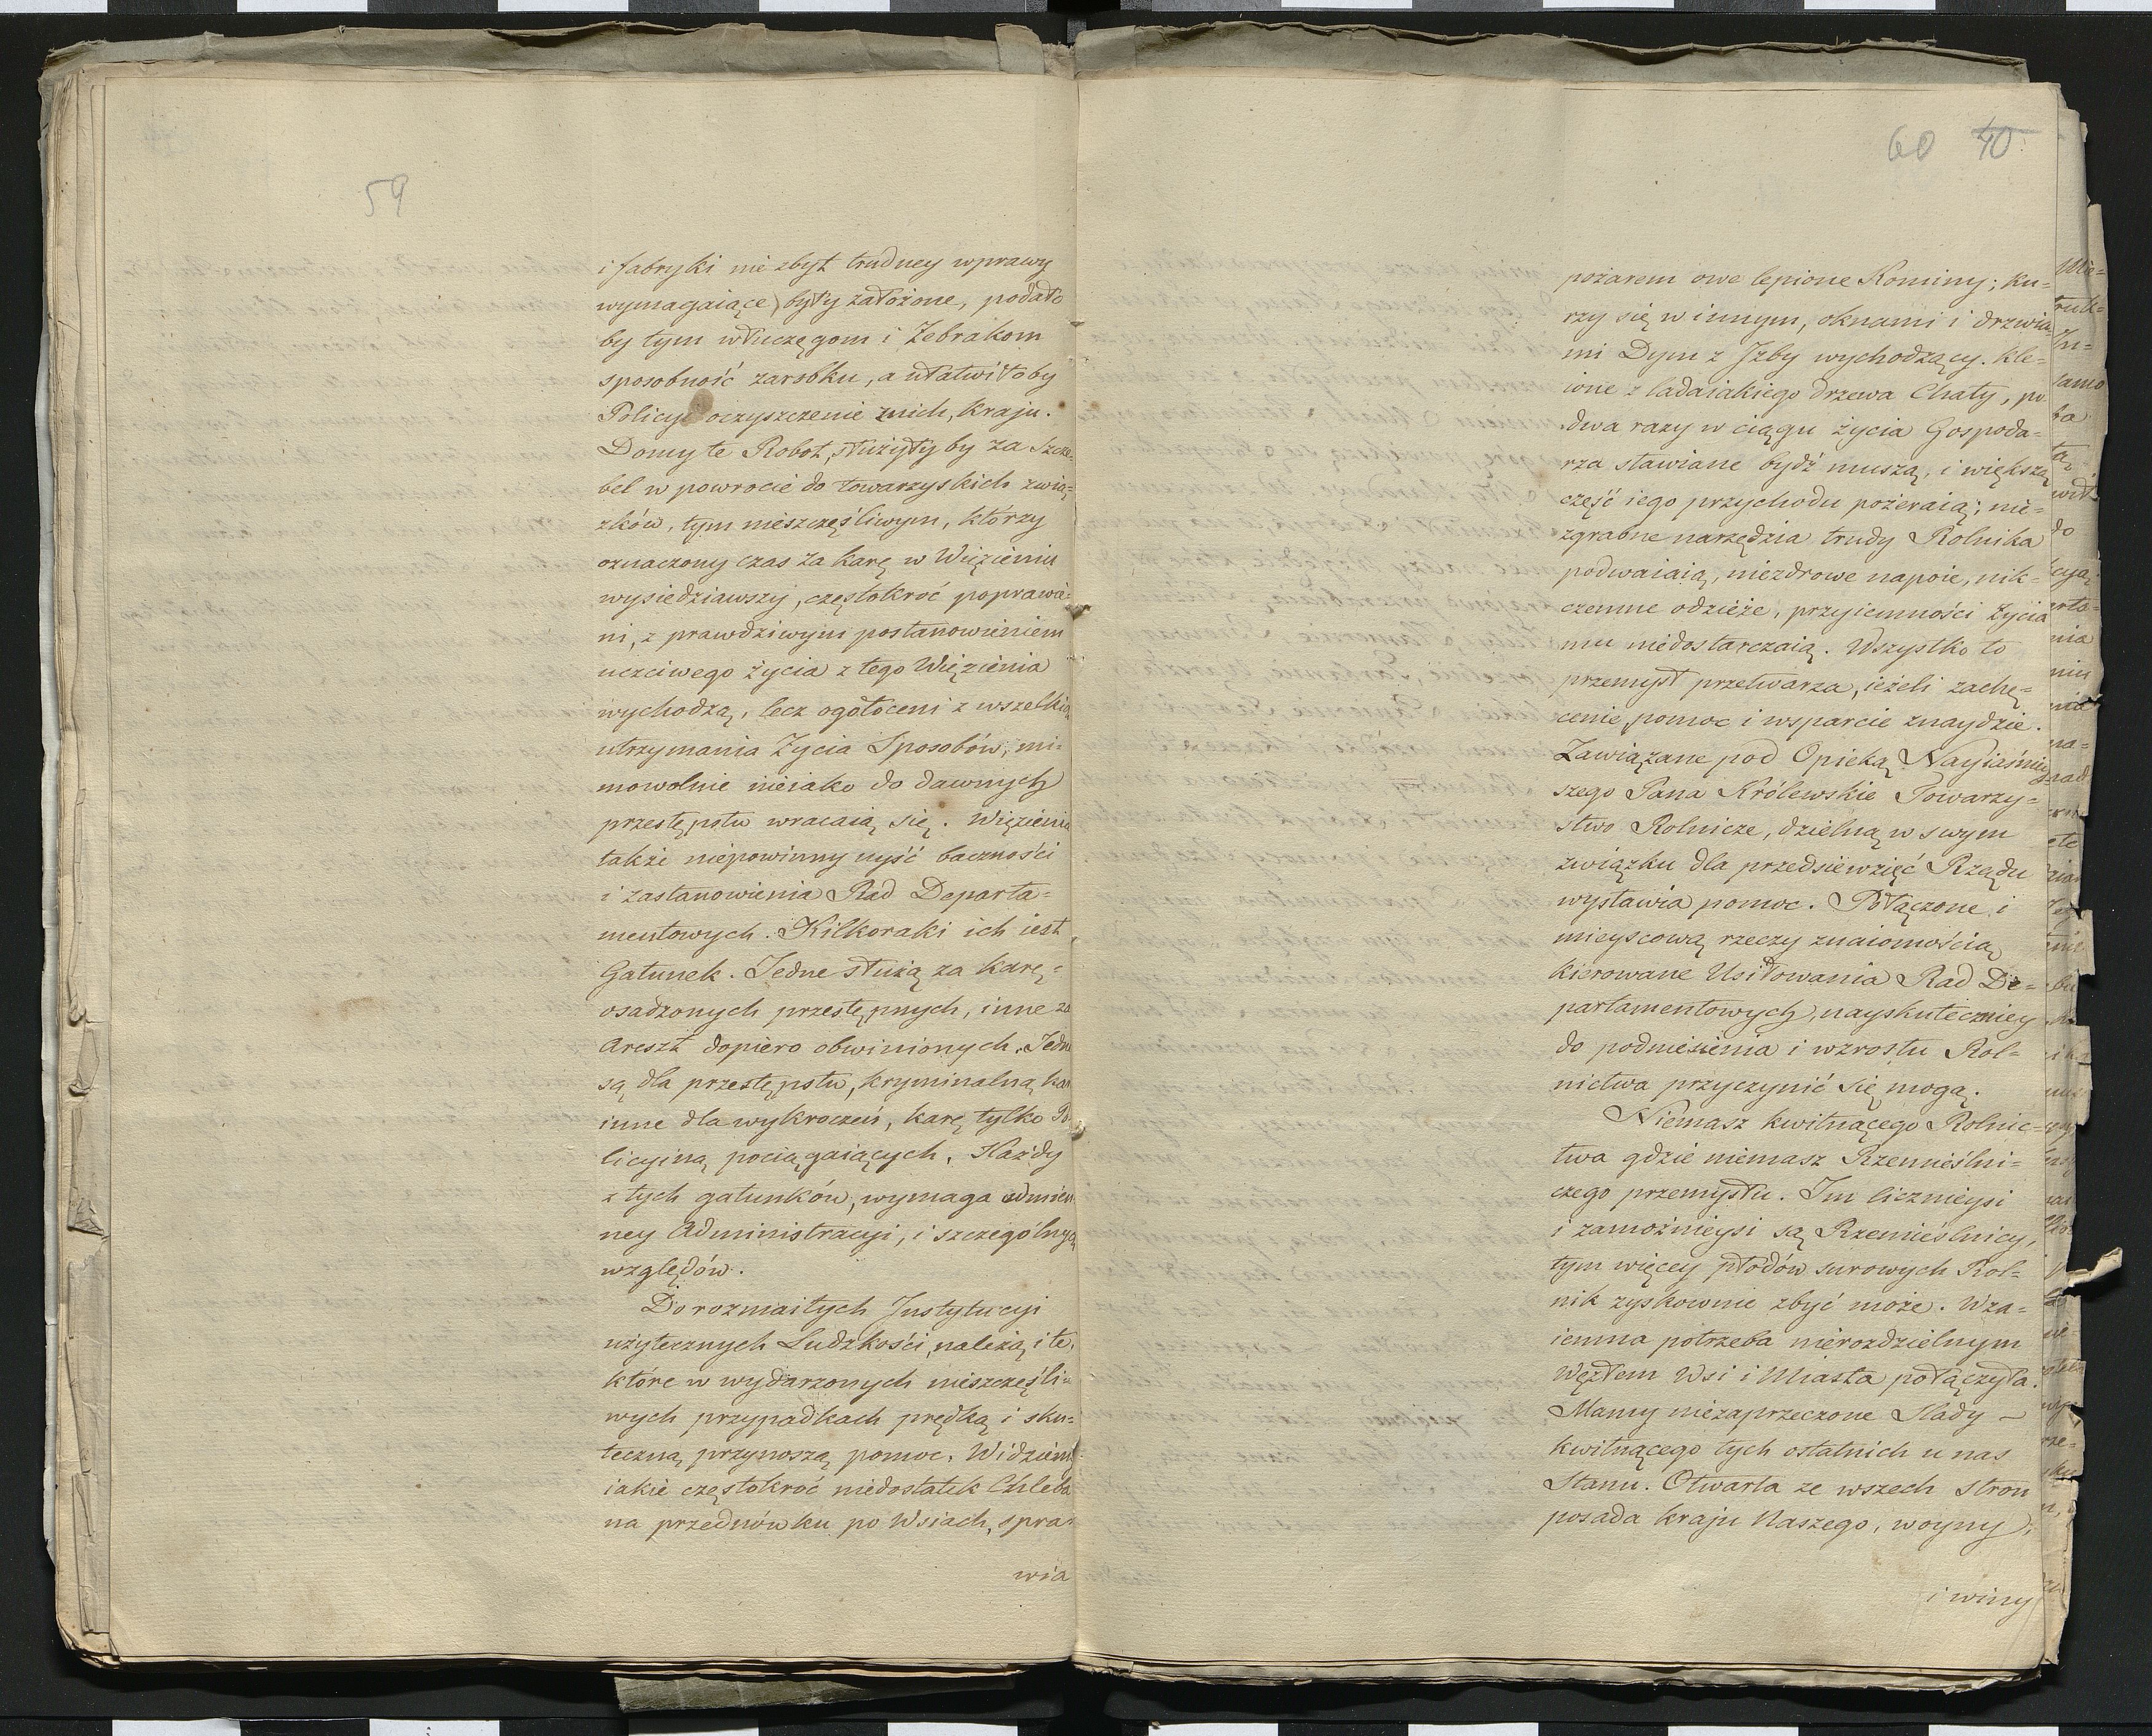 59
i fabryki nie zbyt trudney wprawy
wymagaiące) były założone, podało
by tym włuczęgom i Żebrakom
sposobność zarobku, a ułatwiłoby
Policyi oczyszczenie z nich, Kraju.
Domy te Robot, służyłyby za Szcze-
bel w powrocie do towarzyskich zwią-
zków, tym nieszczęśliwym, którzy
oznaczony czas za karę w Więzieniu
wysiedziawszy, częstokroć poprawie-
ni, z prawdziwym postanowieniem
uczciwego życia z tego Więzienia
wychodzą, lecz ogołoceni z wszelkich
utrzymania Życia Sposobów, mi-
mowolnie nieiako do dawnych
przestępstw wracaią się. Więzienia
także niepowinny uyść baczności
i zastanowienia Rad Departa-
mentowych. Kilkoraki ich iest
Gatunek. Jedne służą za karę
osadzonych przestępnych, inne za
Areszt dopiero obwinionych. Jedne
są dla przestępstw, kryminalną kar
inne dla wykroczeń, karę tylko Po-
licyiną pociągaiących. Każdy
z tych gatunków, wymaga odmien
ney Administracyi, i szczególnych
względów.
Do rozmaitych Instytucyi
użytecznych Ludzkości, należą i te,
które w wydarzonych nieszczęśli-
wych przypadkach prędką i sku-
teczną przynoszą pomoc. Widziem
iakie częstokroć niedostatek Chleba
na przednówku po Wsiach, spra-
wia
60 40.
pożarem owe lepione Kominy; ku-
rzy się w innym, oknami i drzwia-
mi Dym z Jzby wychodzący. Kle-
ione z ladaiakiego drzewa Chaty, po
dwa razy w ciągu życia Gospoda-
rza stawiane bydź muszą, i większą
część iego przychodu pożeraią; nie-
zgrabne narzędzia trudy Rolnika
podwaiaią, niezdrowe napoie, nik-
czemne odzieże, przyiemności życia
mu niedostarczaią. Wszystko to
przemysł przetwarza, ieżeli zachę-
cenie, pomoc i wsparcie znaydzie.
Zawiązane pod Opieką Nayiaśniey-
szego Pana Królewskie Towarzy-
stwo Rolnicze, dzielną w swym
związku dla przedsiewzięć Rządu
wystawia pomoc. Połączone i
mieyscową rzeczy znaiomością
kierowane Usiłowania Rad De-
partamentowych, nayskuteczniey
do podniesienia i wzrostu Rol-
nictwa przyczynić się mogą.
Niemasz kwitnącego Rolnic-
twa gdzie niemasz Rzemieślni-
czego przemysłu. Im licznieysi
i zamożnieysi są Rzemieślnicy,
tym więcey płodów surowych Rol-
nik zyskownie zbyć może. Wza-
iemna potrzeba nierozdzielnym
Węzłem Wsi i Miasta połączyła.
Mamy niezaprzeczone Slady -
kwitnącego tych ostatnich u nas
Stanu. Otwarta ze wszech stron
posada kraju Naszego, woyny,
i winy